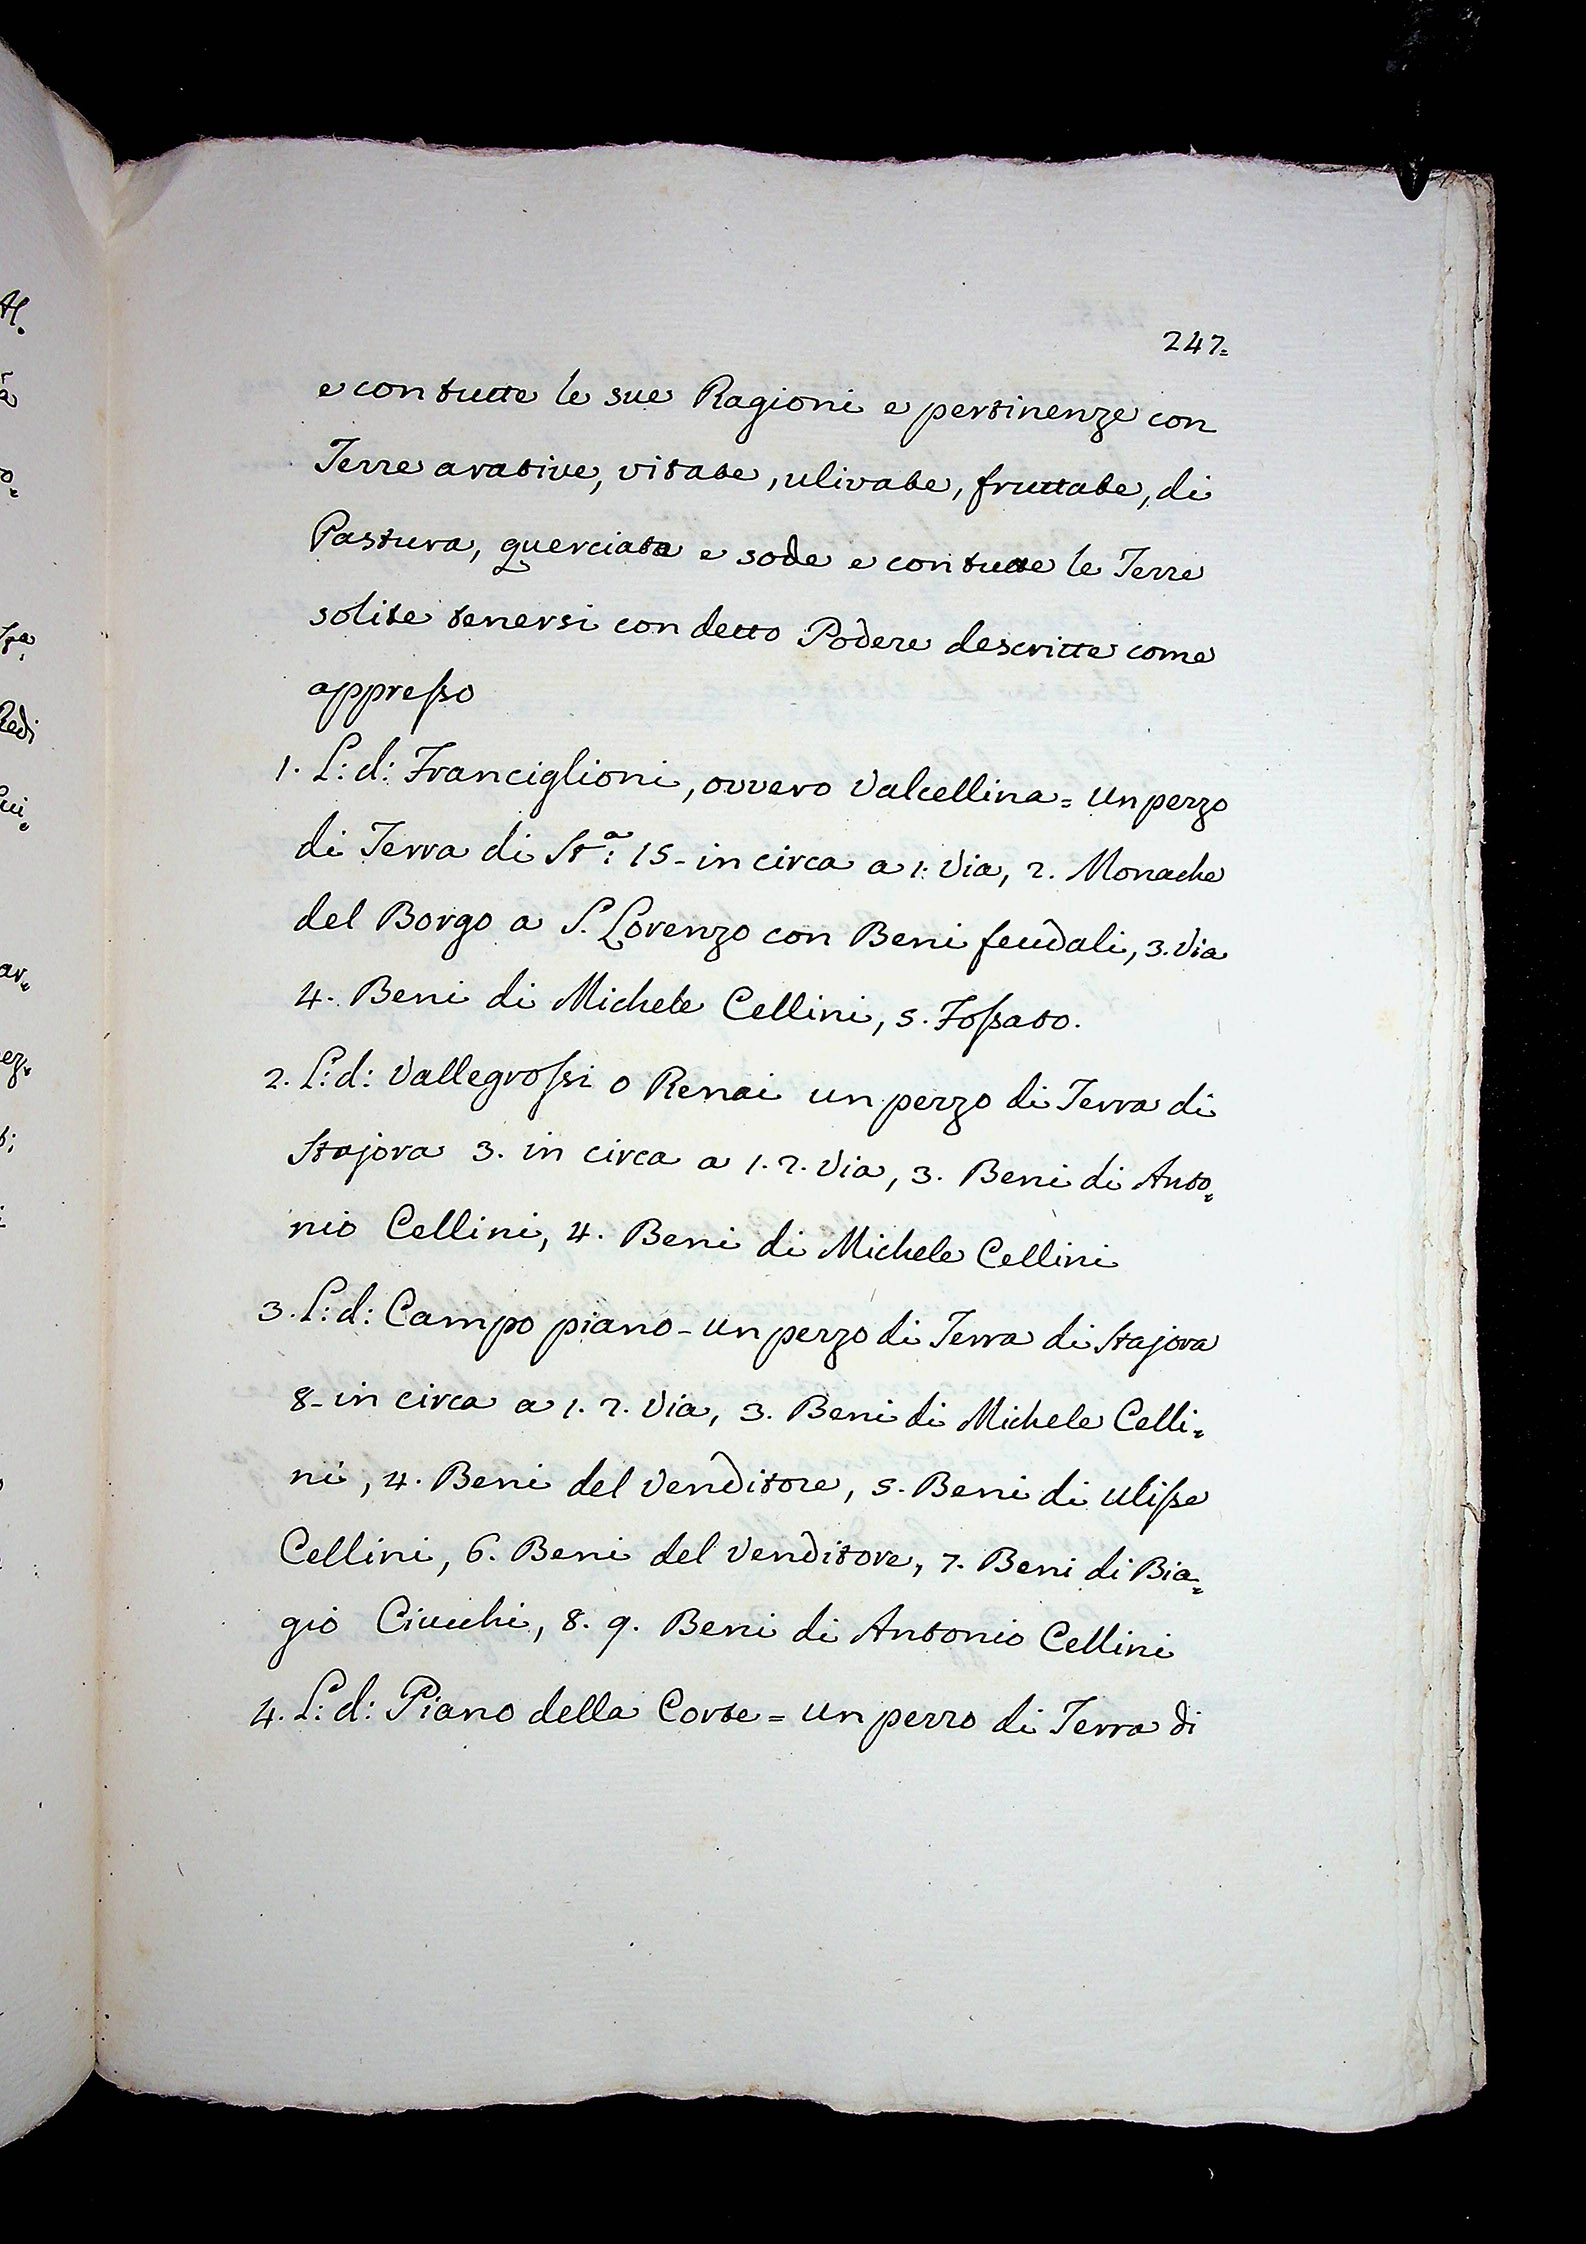 247=
e con tutte le sue Ragioni e pertinenze con
Terre arative, vitate, ulivate, fruttate, di
Pastura, querciata e sode e con tutte le Terre
solite tenersi con detto Podere descritte come
appresso
1. L: d: Franciglioni, ovvero Valcellina = un pezzo
di Terra di Stª: 15 - in circa a 1: Via, 2. Monache
del Borgo a S. Lorenzo con Beni feudali, 3. Via
4. Beni di Michele Cellini, 5. Fossato.
2. L: d: Vallegrossi o Renai un pezzo di Terra di
Stajora 3. in circa a 1. 2. Via, 3. Beni di Anto=
nio Cellini, 4. Beni di Michele Cellini
3. L: d: Campo piano - un pezzo di Terra di Stajora
8 - in circa a 1. 2. Via, 3. Beni di Michele Celli=
ni, 4. Beni del Venditore, 5. Beni di Ulisse
Cellini, 6. Beni del Venditore, 7. Beni di Bia=
gio Ciucchi, 8. 9. Beni di Antonio Cellini
4. L: d: Piano della Corte = un pezzo di Terra di